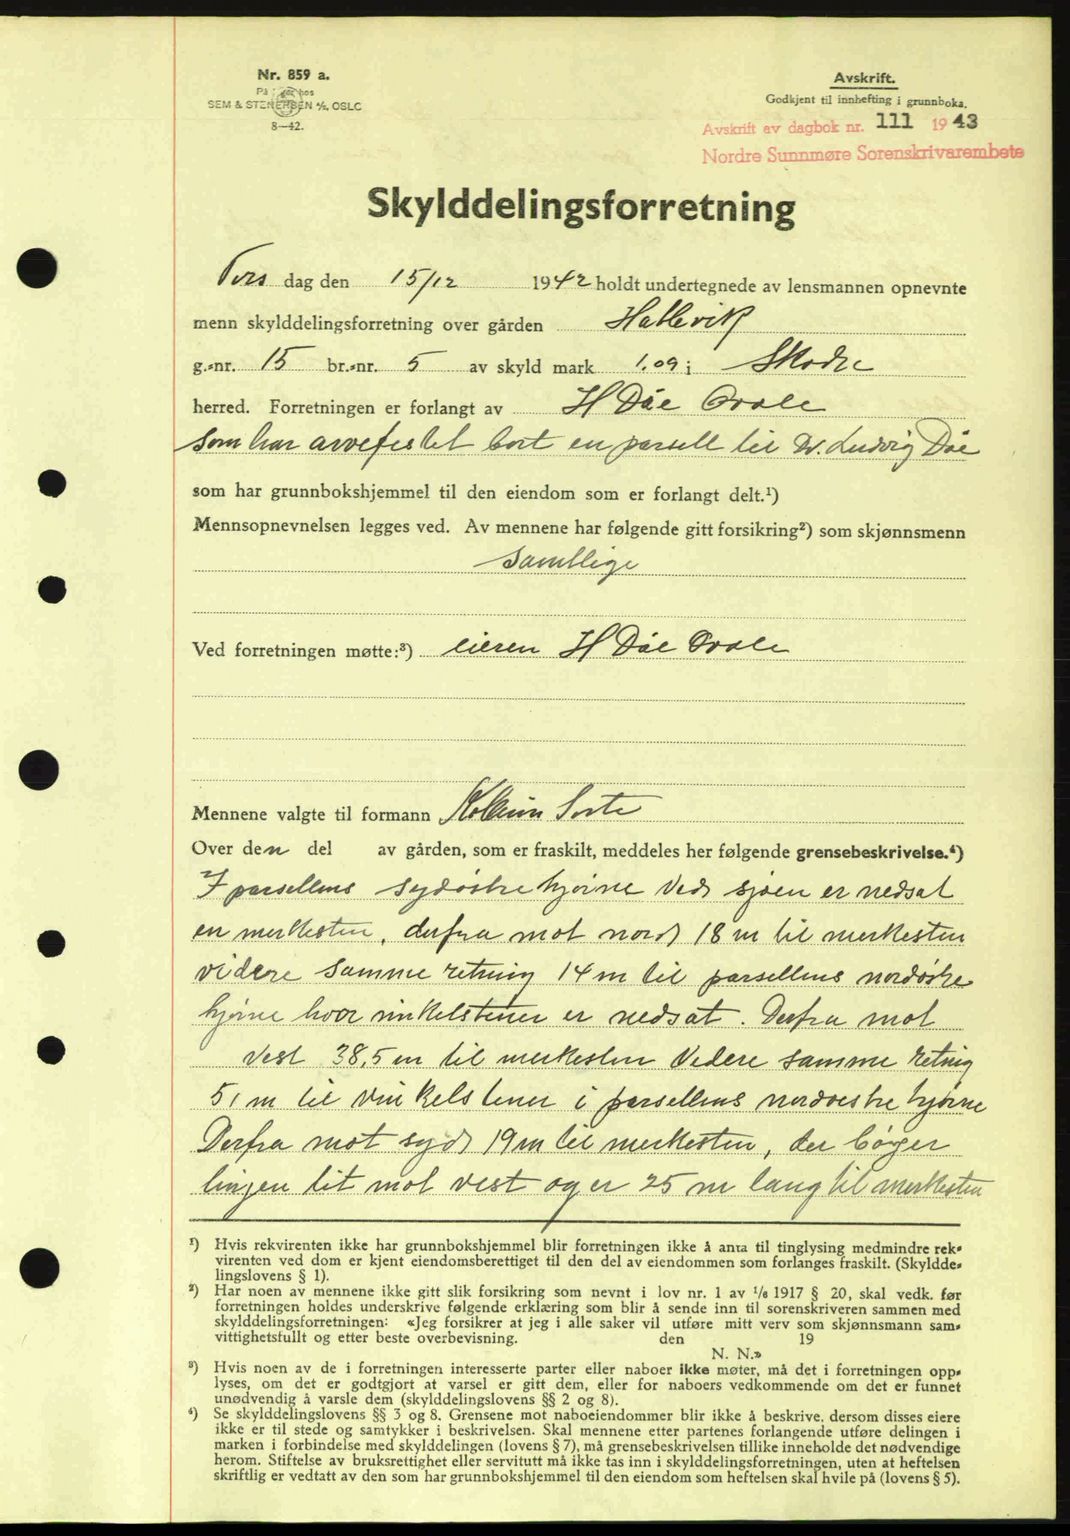 Nr. 859 a.
På lager hos
SEM & STENERSEN A/S, OSLO
8—42.
Avskrift.
Godkjent til innhefting i grunnboka.
Avskrift av dagbok nr. 111 1943
Nordre Sunnmøre Sorenskrivarembete
Skylddelingsforretning
Tirs dag den 15/12 1942 holdt undertegnede av lensmannen opnevnte
menn skylddelingsforretning over gården Hallevik
g.-nr. 15 br.-nr. 5 av skyld mark 1.09 i Skodje
herred. Forretningen er forlangt av H Døe
som har arvefestet bort en parsell til Ludvig Døe
som har grunnbokshjemmel til den eiendom som er forlangt delt.¹)
Mennsopnevnelsen legges ved. Av mennene har følgende gitt forsikring²) som skjønnsmenn
samtlige
Ved forretningen møtte:³) eieren H Døe
Mennene valgte til formann
Over den del av gården, som er fraskilt, meddeles her følgende grensebeskrivelse.⁴)
I parsellens sydøstre hjørne ved sjøen er nedsat
en merkesten, derfra mot nord 18 m til merkesten
videre samme retning 14 m til parsellens nordøstre
hjørne hvor vinkelstener er nedsat. Derfra mot
vest 38,5 m til merkesten videre samme retnig
51 m til vinkelstener i parsellens nordvestre hjørne
Derfra mot syd 19 m til merkesten, der bøyer
linjen lit mot vest og er 25 m lang til merkesten
¹) Hvis rekvirenten ikke har grunnbokshjemmel blir forretningen ikke å anta til tinglysing medmindre rek-
virenten ved dom er kjent eiendomsberettiget til den del av eiendommen som forlanges fraskilt. (Skyldde-
lingslovens § 1).
²) Har noen av mennene ikke gitt slik forsikring som nevnt i lov nr. 1 av 1/6 1917 § 20, skal vedk. før
forretningen holdes underskrive følgende erklæring som blir å sende inn til sorenskriveren sammen med
skylddelingsforretningen: «Jeg forsikrer at jeg i alle saker vil utføre mitt verv som skjønnsmann sam-
vittighetsfullt og etter beste overbevisning. den 19
N. N.»
³) Hvis noen av de i forretningen interesserte parter eller naboer ikke møter, må det i forretningen opp-
lyses, om det er godtgjort at varsel er gitt dem, eller for naboers vedkommende om det er funnet
unødvendig å varsle dem (skylddelingslovens §§ 2 og 8).
⁴) Se skylddelingslovens §§ 3 og 8. Grensene mot naboeiendommer blir ikke å beskrive, dersom disses eiere
ikke er til stede og samtykker i beskrivelsen. Skal mennene etter partenes forlangende utføre delingen i
marken i forbindelse med skylddelingen (lovens § 7), må grensebeskrivelsen tillike inneholde det nødvendige
herom. Stiftelse av bruksrettighet eller servitutt må ikke tas inn i skylddelingsforretningen, uten at heftelsen
skriftlig er vedtatt av den som har grunnbokshjemmel til den eiendom som heftelsen skal hvile på (lovens § 5).